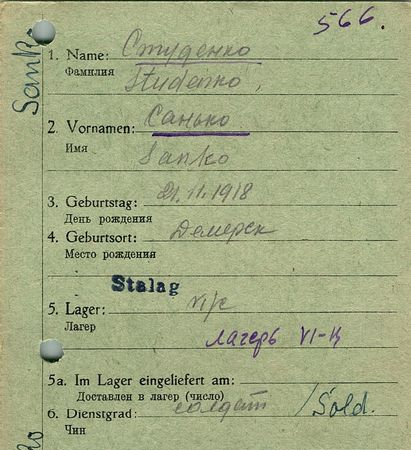 566.
Sanko
1. Name: Студенко
Фамилия Studenko,
2. Vornamen: Санько
Имя Sanko
3. Geburtstag: 21.11.1918
День рождения
4. Geburtsort: Демерск
Место рождения
Stalag
5. Lager: VI/c
Лагер лагерь VI-К
5a. Im Lager eingeliefert am:
Доставлен в лагер (число)
6. Dienstgrad: солдат /Sold.
Чин